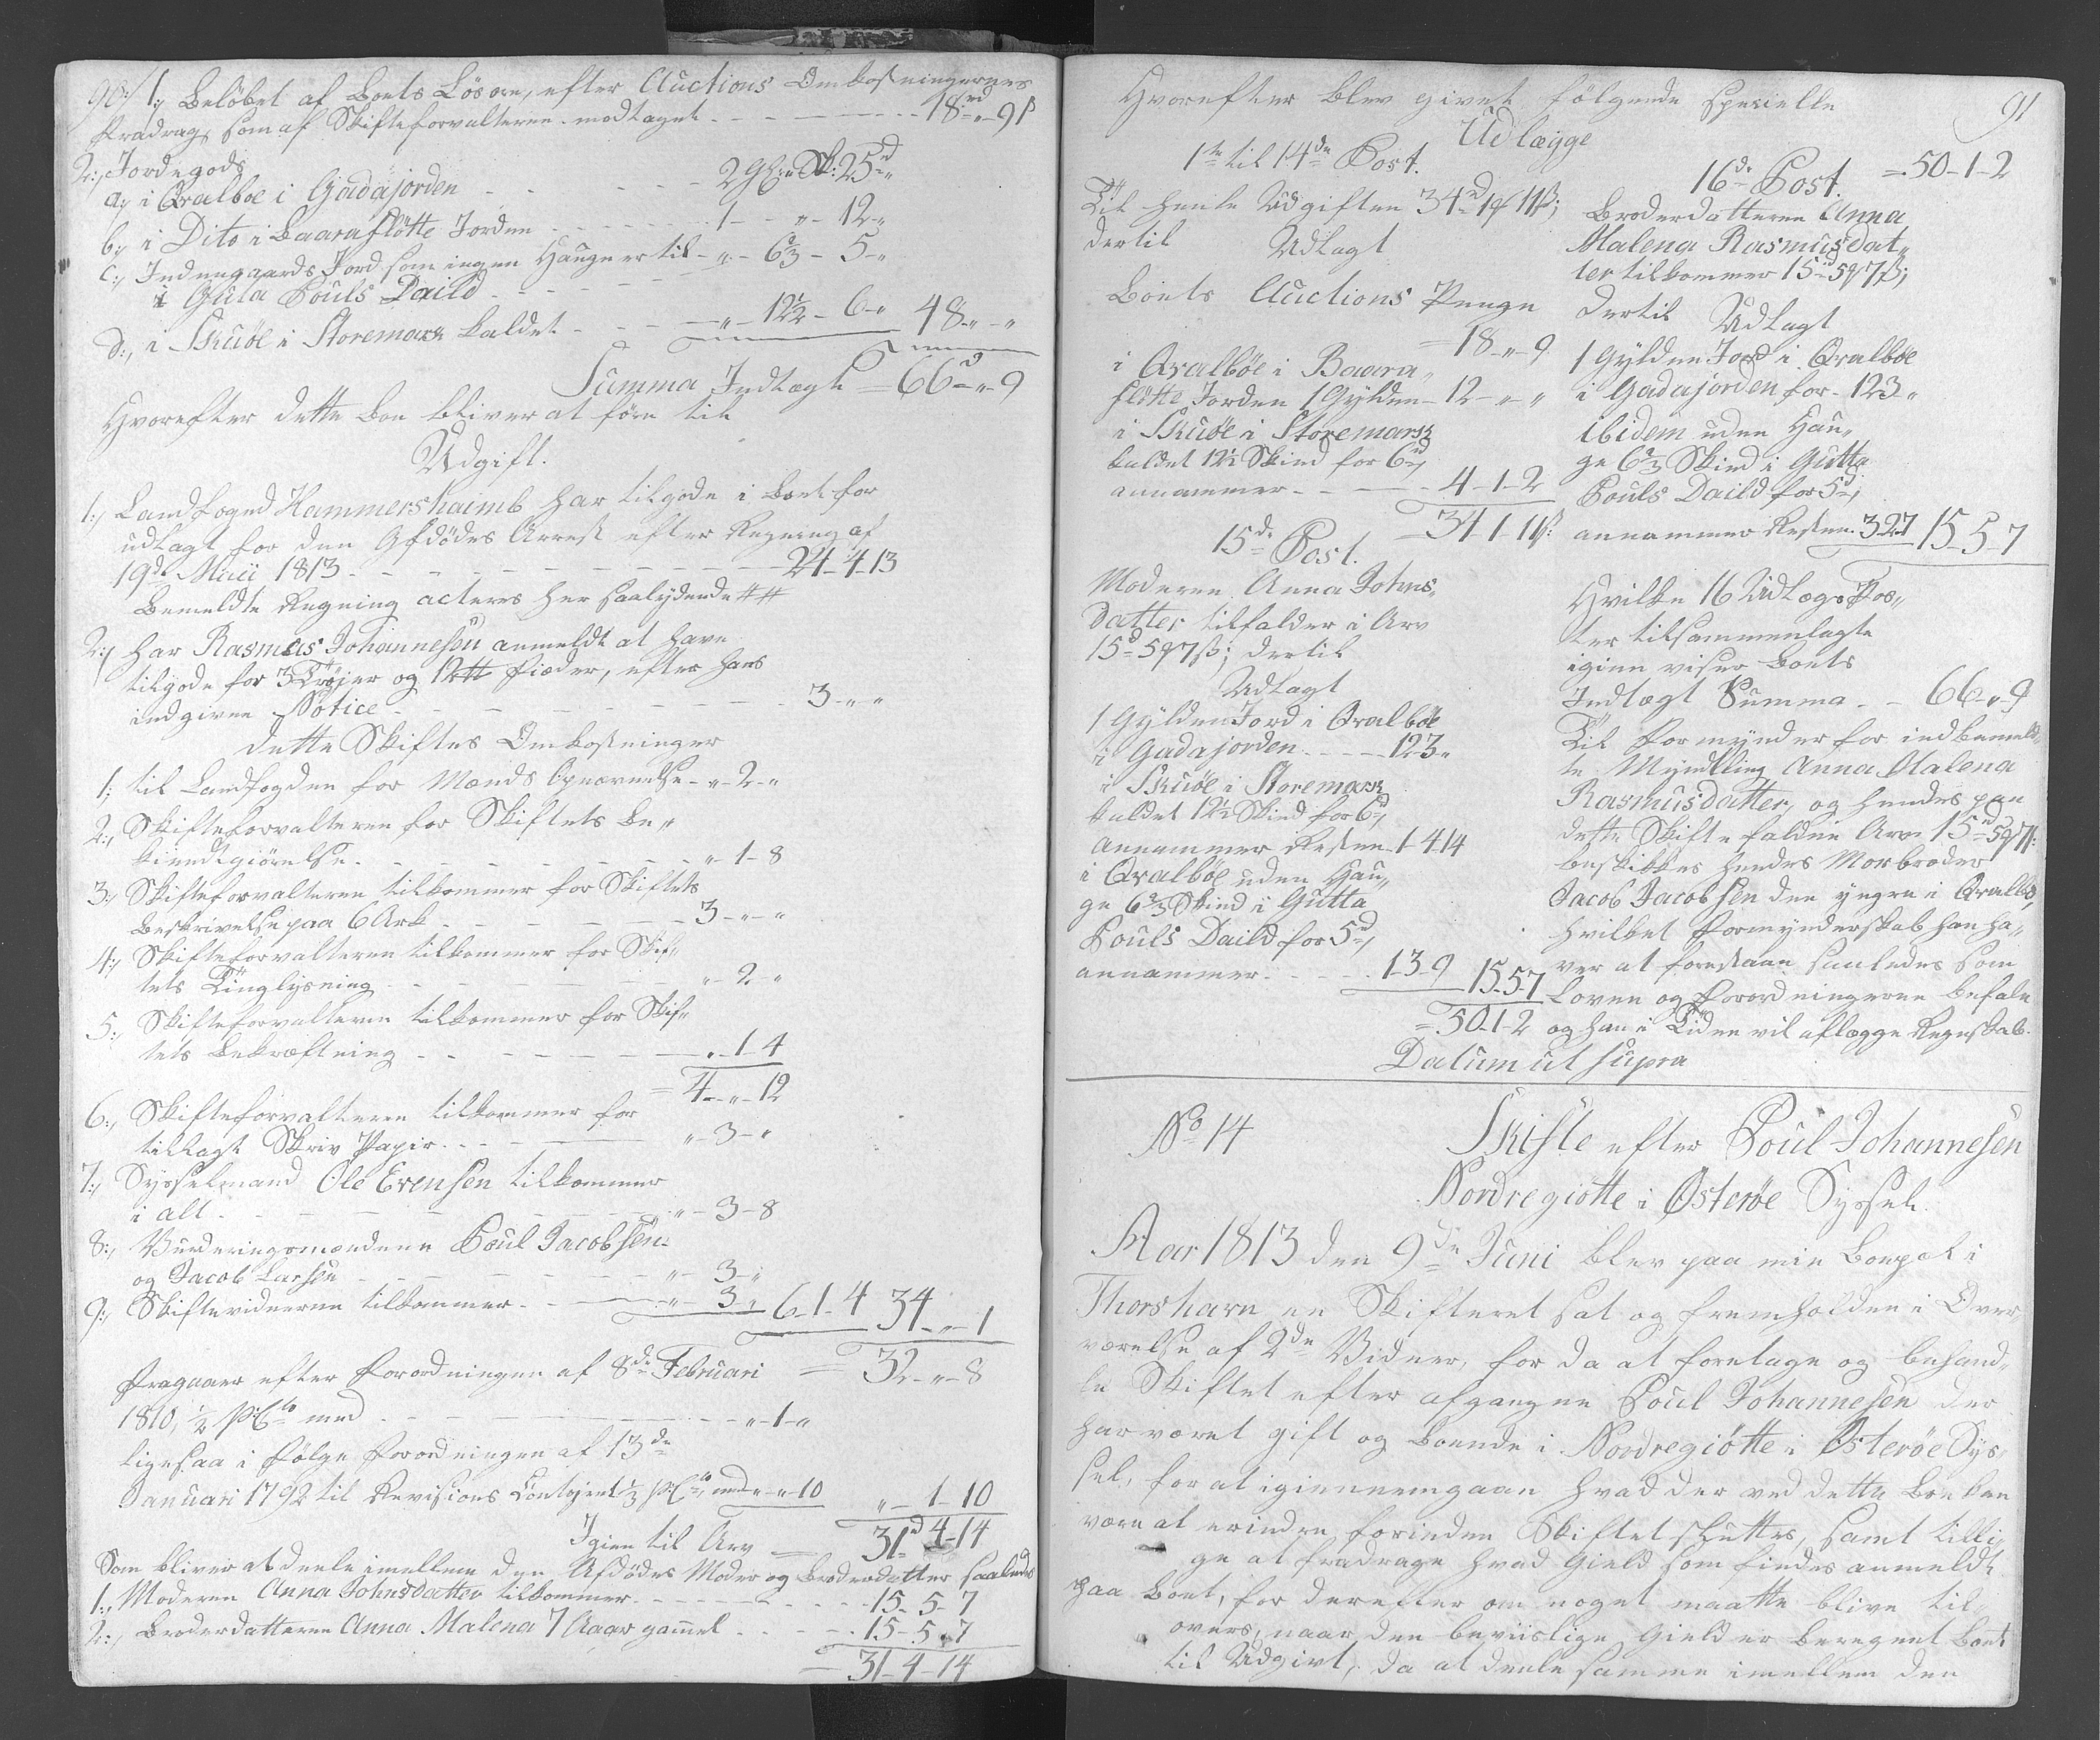 90./ 1:, Beløbet af Boets Løsøre, efter Auctions Omkostningernes
Fradrag, som af Skifteforvalteren modtaget - - - 18rd „ 9ß
2:, Jordegods
a:, i Qvalboe i Gadajorden - - - 2 Gl: „ Sk: 25d „
b:, i Dito i Baarafløtte Jorden - - - 1 - „ - 12 - „
C:, Indengaards Jord som ingen Hauge er til - „ - 6⅔ - 5 - „
i Guta Pouls Daild - - -
d:, i Skuøe i Storemark kaldet - - - „ - 12½ - 6 - „ 48 - „ - „
Summa Indtægt = 66d „ - 9
Hvorefter dette Boe bliver at føre til
Udgift.
1:, Landfoged Hammershaimb har tilgode i Boet for
udlagt for den Afdødes Arrest efter Regning af
19de Maii 1813 - - - 24 - 4 - 13
Bemeldte Regning acteres her saalydende ##
2:, har Rasmus Johannesen anmeldt at have
tilgode for 3 Trøjer og 12 # Fiæder, efter hans
indgivne Notice - - - 3 - „ - „
dette Skiftes Omkostninger
1; til Landfogden for Mænds Opnævnelse - „ - 2 - „
2:, Skifteforvalteren for Skiftets Be„
kiendtgiørelse - - - „ - 1 - 8
3:, Skifteforvalteren tilkommer for Skiftets
Beskrivelse paa 6 Ark - - - 3 - „ - „
4:, Skifteforvalteren tilkommer for Skif„
tets Tinglysning - - - „ - 2 - „
5:, Skifteforvalteren tilkommer for Skif„
tets Bekræftning - - - „ - 1 - 4
= 4 - „ - 12
6:, Skifteforvalteren tilkommer for
tillagt Skriv Papir - - - „ - 3 - „
7:, Sysselmand Ole Evensen tilkommer
i alt - - - „ - 3 - 8
8:, Vurderingsmændene Poul Jacobsen
og Jacob Larsen - - - „ - 3 - „
9:, Skiftevidnerne tilkommer - - - „ - 3 „ 6 - 1 - 4 34 - „ - 1
= 32 - „ - 8
Fragaaer efter Forordningen af 8de Februari
1810, ½ PCto med - - - „ - 1 - „
ligesaa i følge Forordningen af 13de
Januari 1792 til Revisions Contoiret ⅓ PCto, med „ - „ - 10 „ - 1 - 10
Igien til Arv = 31d 4 - 14
Som bliver at deele imellem den Afdødes Moder og Broderdatter saaledes
1:, Moderen Anna Johnsdatter tilkommer - - - 15 - 5 - 7
2:, Broderdatteren Anna Malena 7 Aar gammel - - - 15 - 5 - 7
= 31 - 4 - 14
91
Hvorefter blev givet følgende specielle
Udlægge
1te til 14de Post.
Til heele Udgiften 34d 1 q 11ß;
dertil Udlagt
Boets Auctions Penge
= 18 - „ - 9
i Qvalbøe i Baara„
fløtte Jorden 1 Gylden - 12 - „ - „
i Skuøe i Storemark
kaldet 12½ Skind for 6d,
annammer - - - 4 - 1 - 2
= 34 - 1 - 11ß:
15de Post.
Moderen Anna Johns„
datter tilfalder i Arv
15d 5 q 7ß; dertil
Udlagt
1 Gylden Jord i Qvalbøe
i Gadajorden - - - 12 3 „
i Skuøe i Storemark
kaldet 12½ Skind for 6d,
annammer Resten - 1 - 4 - 14
i Qvalbøe uden Hau„
ge 6⅔ Skind i Gutta
Pouls Daild for 5d,
annammer - - - 1 - 3 - 9 15 - 5 - 7
= 50 - 1 - 2
16de Post. = 50 - 1 - 2
Broderdatteren Anna
Malena Rasmusdat„
ter tilkommer 15d 5 q 7ß;
dertil Udlagt
1 Gylden Jord i Qvalbøe
i Gadajorden for - 12 3 „
ibidem uden Hau„
ge 6⅔ Skind i Gutta
Pouls Daild for 5d,
annammer Resten 3 2 7 15 - 5 - 7
Hvilke 16 Udlægs Pos„
ter tilsammenlagte
igien viser Boets
Indtægt Summa - - 66 - „ - 9
Til Formynder for indbemeld„
te Myndling Anna Malena
Rasmusdatter, og hendes paa
dette Skifte faldne Arv 15d 5 q 7ß:
beskikkes hendes Morbroder
Jacob Jacobsen den yngre i Qvalbø,
hvilket Formynderskab han ha„
ver at forestaae saaledes som
Loven og Forordningerne befale
og han i Tiden vil aflægge Regnskab.
Datum ut supra
No 14 Skifte efter Poul Johannesen
Nordregiøtte i Østerøe Syssel.
Aar 1813 den 9de Juni blev paa min Boepæl i
Thorshavn en Skifteret sat og fremholden i Over„
værelse af 2de Vidner, for da at foretage og behand„
le Skiftet efter afgangne Poul Johannesen der
har været gift og boende i Nordregiøtte i Østerøe Sys„
sel, for at igiennemgaae hvad der ved dette Boe kan
være at erindre, forinden Skiftet sluttes, samt tilli„
ge at fradrage hvad Gield som findes anmeldt
paa Boet, for derefter om noget maatte blive til„
overs, naar den beviislige Gield er beregnet Boet
til Udgivt, da at deele samme imellem den